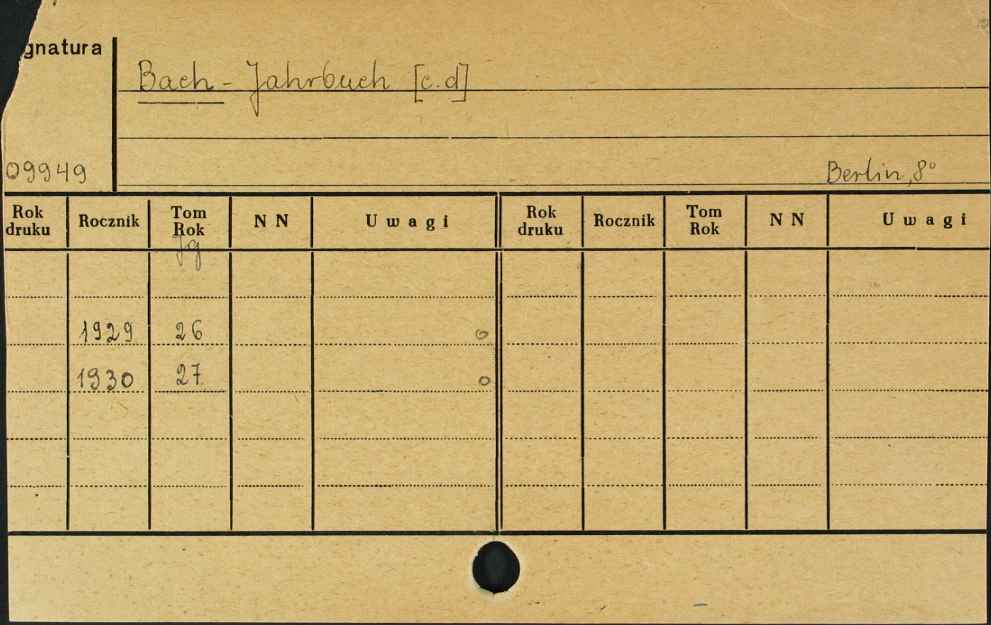 gnatura
Bach-Jahrbuch [c.d]
09949
Berlin, 8°
Rok druku Rocznik Tom Rok N N Uwagi Rok druku Rocznik Tom Rok N N Uwagi
Jg
1929 26 o
1930 27 o